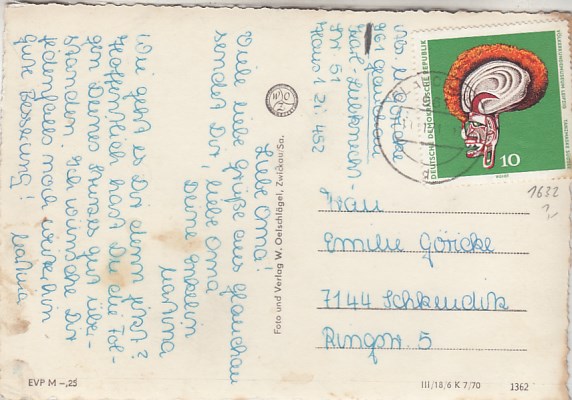 Liebe Oma!
Viele liebe Grüße aus Glauchau
sendet Dir, liebe Oma
Deine Enkelin
Martina
Wie geht es Dir denn jetzt?
Hoffentlich hast Du die Fol-
gen Deines Sturzes gut über-
standen. Ich wünsche Dir
jedenfalls noch weiterhin
gute Besserung! Martina
Foto und Verlag W. Oelschlägel, Zwickau/Sa.
M. Göricke
961 Glauchau
Karl-Liebknecht-
Str. 51
Haus 2 Z. 452
DEUTSCHE DEMOKRATISCHE REPUBLIK
10
1632
Frau
Emilie Göricke
7144 Schkeuditz
Ringstr. 5
EVP M -,25
III/18/6 K 7/70
1362